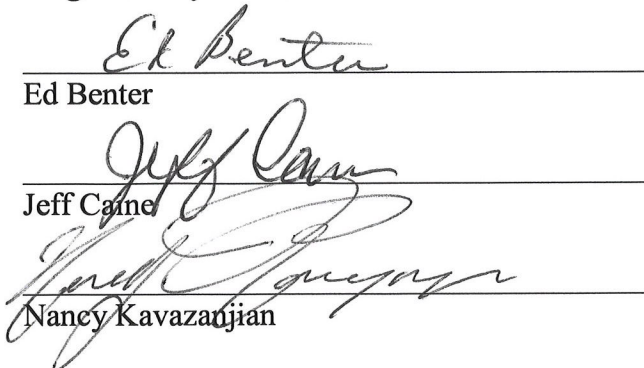 Ed Benter
Ed Benter
Jeff Caine
Jeff Caine
Nancy Kavazanjian